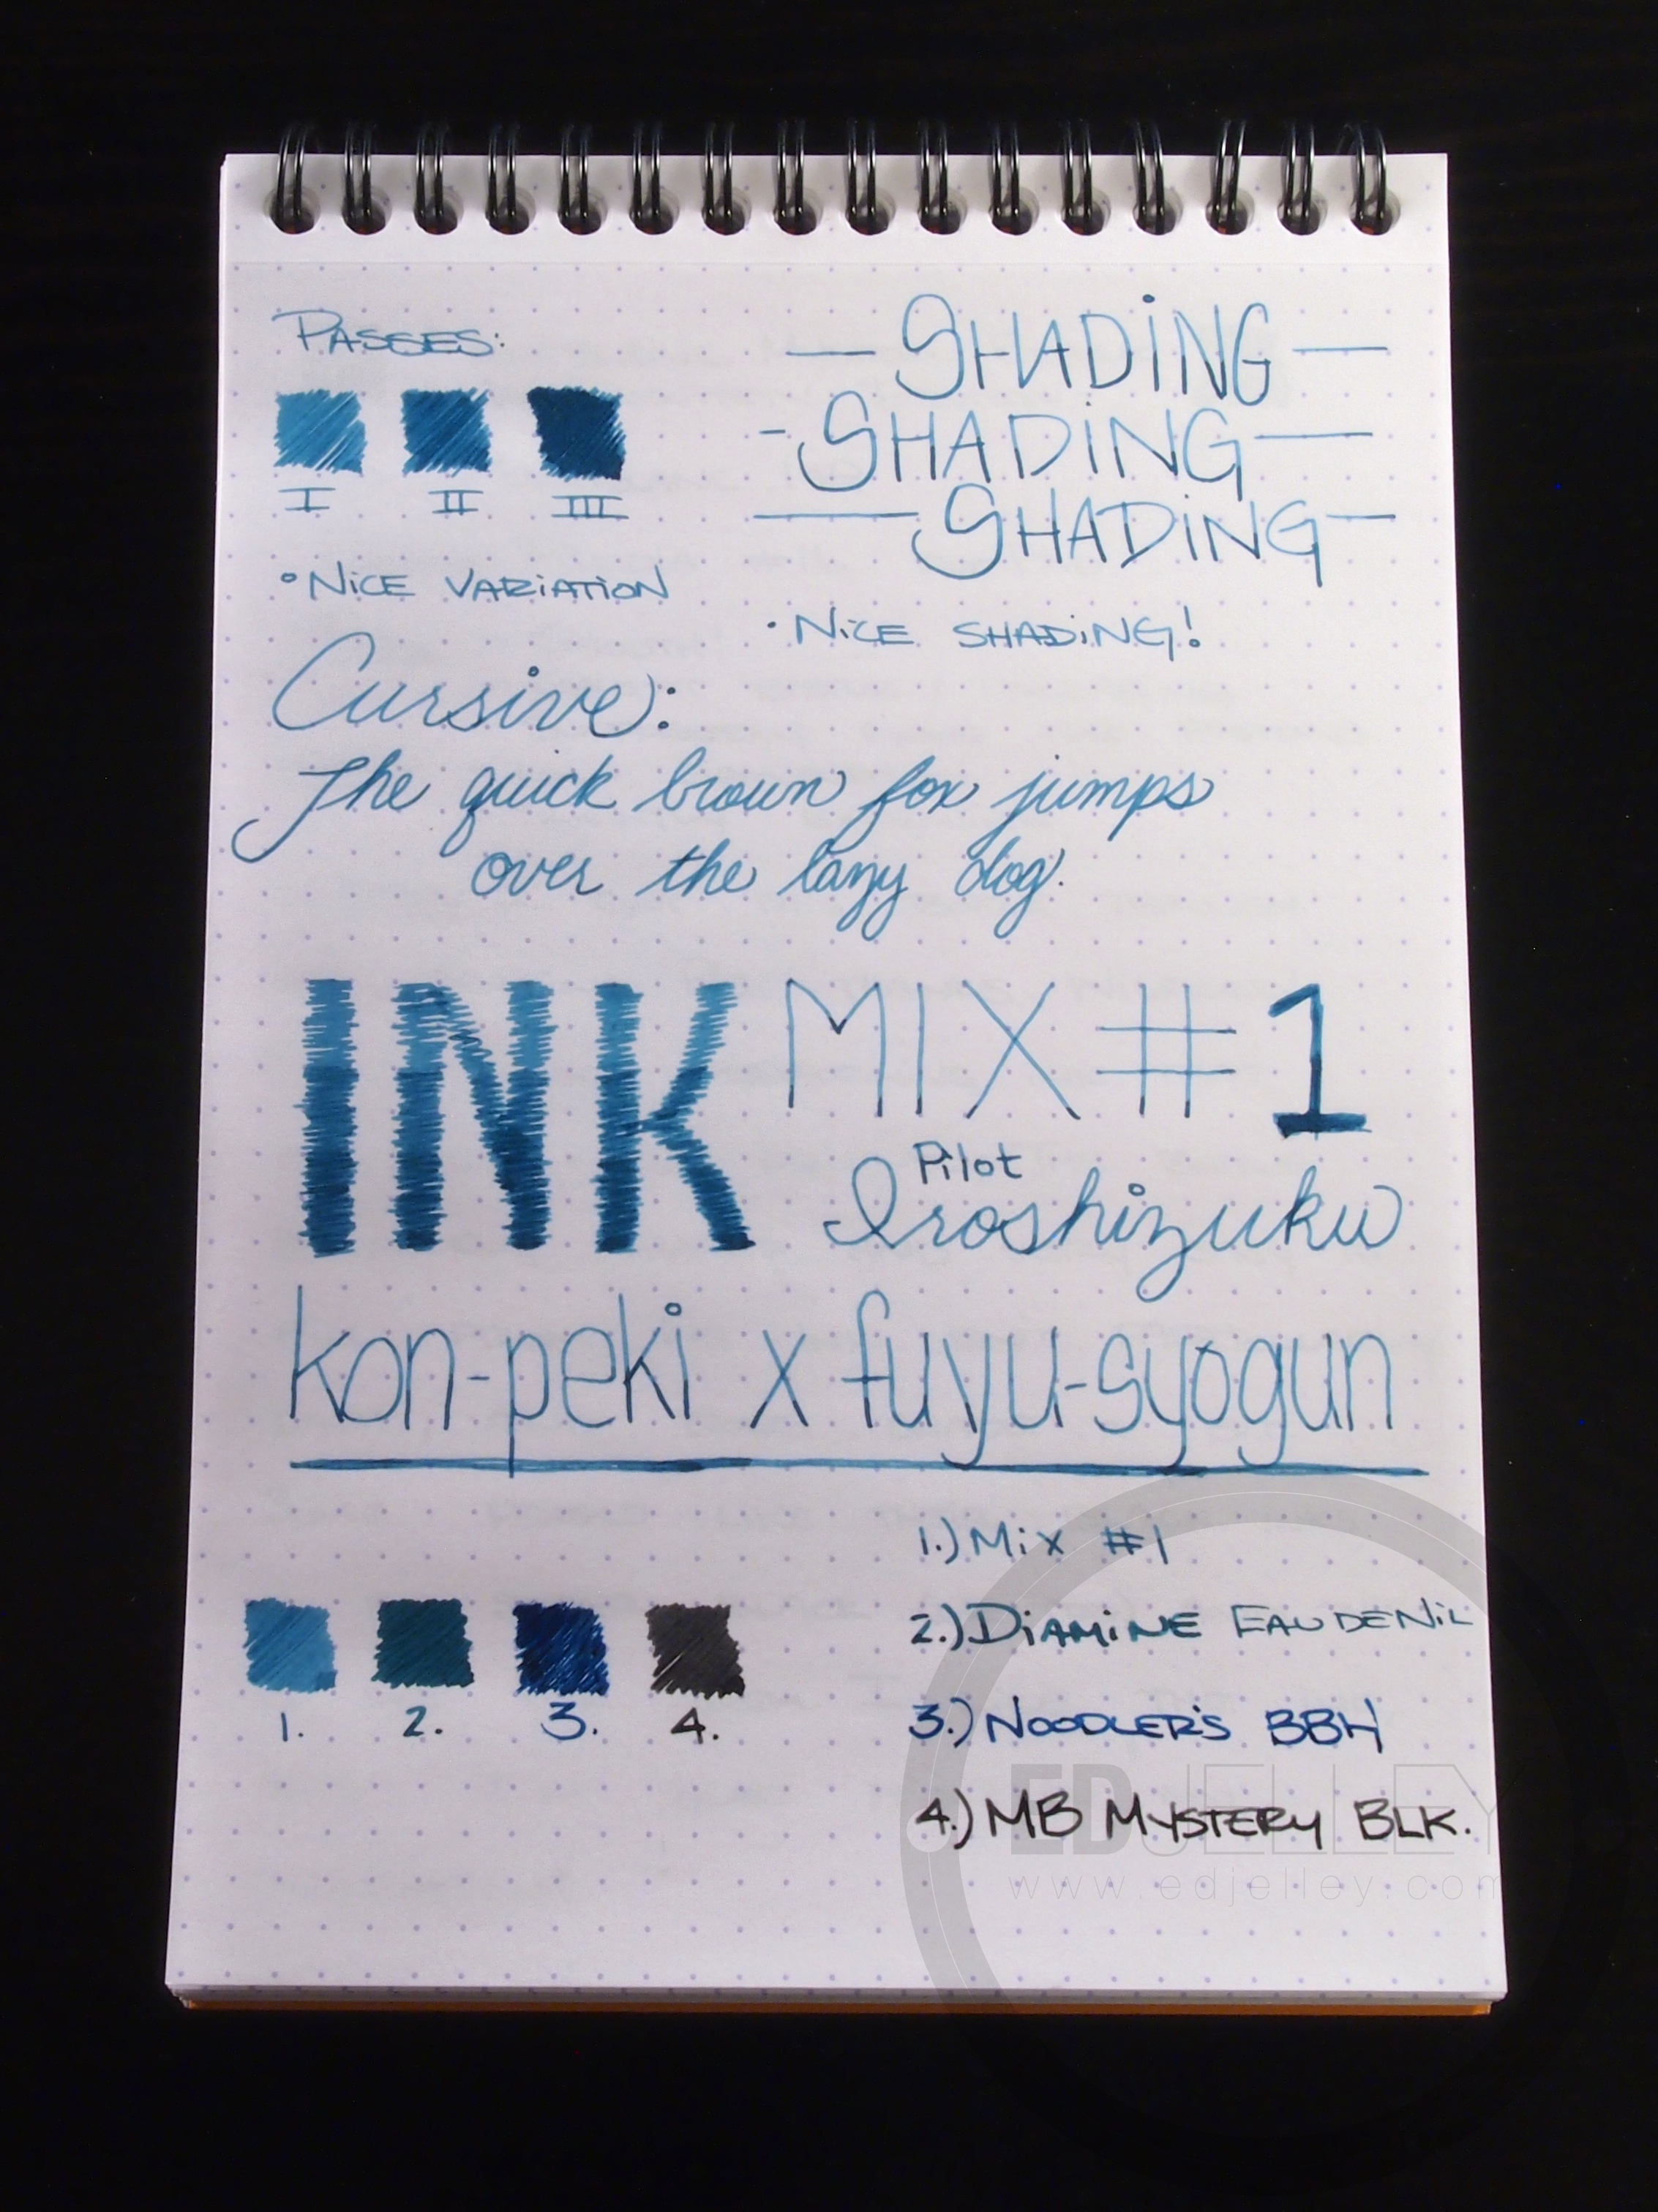 PASSES:
I II III
• NiCE VARiATiON
— SHADiNG —
- SHADiNG —
— SHADiNG -
• NiCE SHADiNG!
Cursive:
The quick brown fox jumps
over the lazy dog.
INK MIX #1
Pilot
Iroshizuku
kon-peki x fuyu-syogun
1.) MiX #1
2.) DiAMiNE EAU DE NiL
3.) NOODLER'S BBH
4.) MB MYSTERY BLK.
1. 2. 3. 4.
EDJELLEY
www.edjelley.com